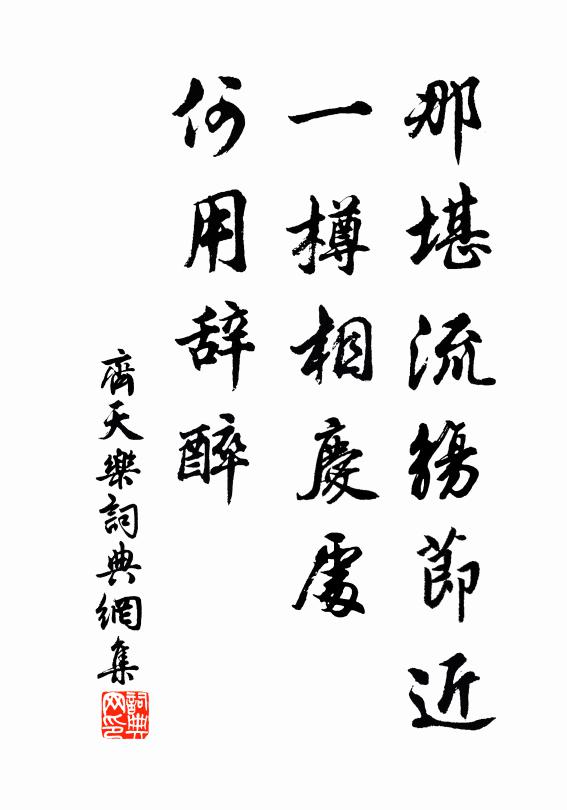 那堪流觴節近
一樽相慶處
何用辞醉
齊天樂詞典網集
詞典網印